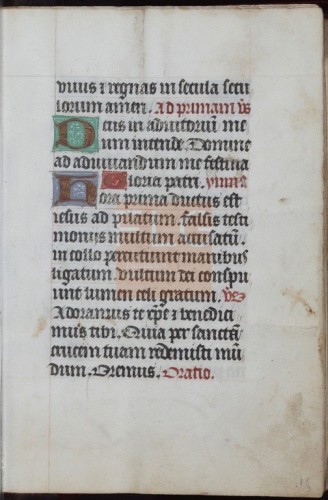 viuis ⁊ regnas in secula secu
lorum amen. Ad primam v͛s
Deus in adiutoriū me
um intende. Domine
ad adiuuandum me festina
Gloria patri. ymn⁹
Hora prima ductus est
iesus ad pilatum. falsis testi
monijs multum accusatū.
in collo percutiunt manibus
ligatum. vultum dei conspu
unt lumen celi gratum. v͛s
Adoramus te xp̄e ⁊ benedici
mus tibi. Quia per sanctā
crucem tuam redemisti mū
dum. Oremus. Oratio.